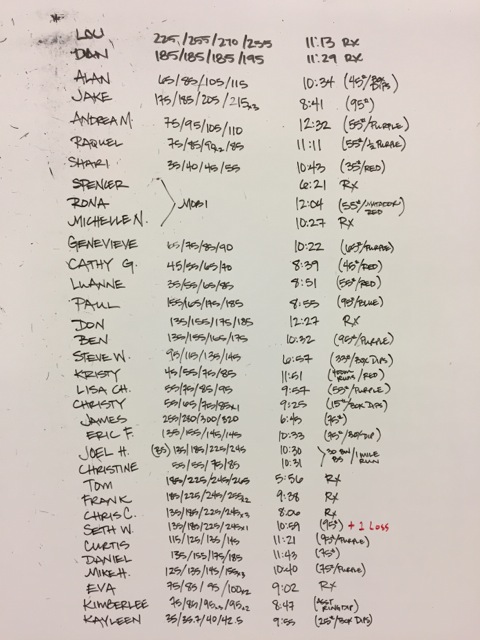 LOU 225/255/270/255 11:13 RX
DAN 185/185/185/195 11:29 RX
ALAN 65/85/105/115 10:34 (45#/BOX DIPS)
JAKE 175/185/205/215x3 8:41 (95#)
ANDREA M. 75/95/105/110 12:32 (55#/PURPLE)
RAQUEL 75/85/90x2/85 11:11 (55#/½ PURPLE)
SHARI 35/40/45/55 10:43 (35#/RED)
SPENCER 6:21 RX
RONA > MOBI 12:04 (55#/ RED)
MICHELLE N. 10:27 RX
GENEVIEVE 65/75/85/90 10:22 (65#/PURPLE)
CATHY G. 45/55/65/70 8:39 (45#/RED)
LUANNE 35/55/65/85 8:51 (55#/RED)
PAUL 155/165/175/185 8:55 (95#/BLUE)
DON 135/155/175/185 12:27 RX
BEN 135/155/165/175 10:32 (95#/PURPLE)
STEVE W. 95/115/135/145 6:57 (33#/BOX DIPS)
KRISTY 45/55/75/85 11:51 (400M RUNS/RED)
LISA CH. 55/75/85/95 9:57 (55#/PURPLE)
CHRISTY 55/65/75/85x1 9:25 (15#/BOX DIPS)
JAMES 255/280/300/320 6:45 (75#)
ERIC F. 135/155/145/145 10:33 (75#/BOX DIP)
JOEL H. (85) 135/185/225/245 10:30
CHRISTINE 55/55/75/85 10:31 > 30 / 1 MILE RUN
TOM 185/225/245/265 5:56 RX
FRANK 185/225/245/255x2 9:38 RX
CHRIS C. 135/185/225/245x3 8:06 RX
SETH W. 135/180/225/245x1 10:59 (95#) + 1 LOSS
CURTIS 115/125/135/145 11:21 (95#/PURPLE)
DANIEL 135/155/175/185 11:43 (75#)
MIKE H. 125/135/145/155x3 10:40 (75#/PURPLE)
EVA 75/85/95/100x2 9:02 RX
KIMBERLEE 75/85/95/95x2 8:47 (ASST RING DIP)
KAYLEEN 35/35.7/40/42.5 9:55 (25#/BOX DIPS)